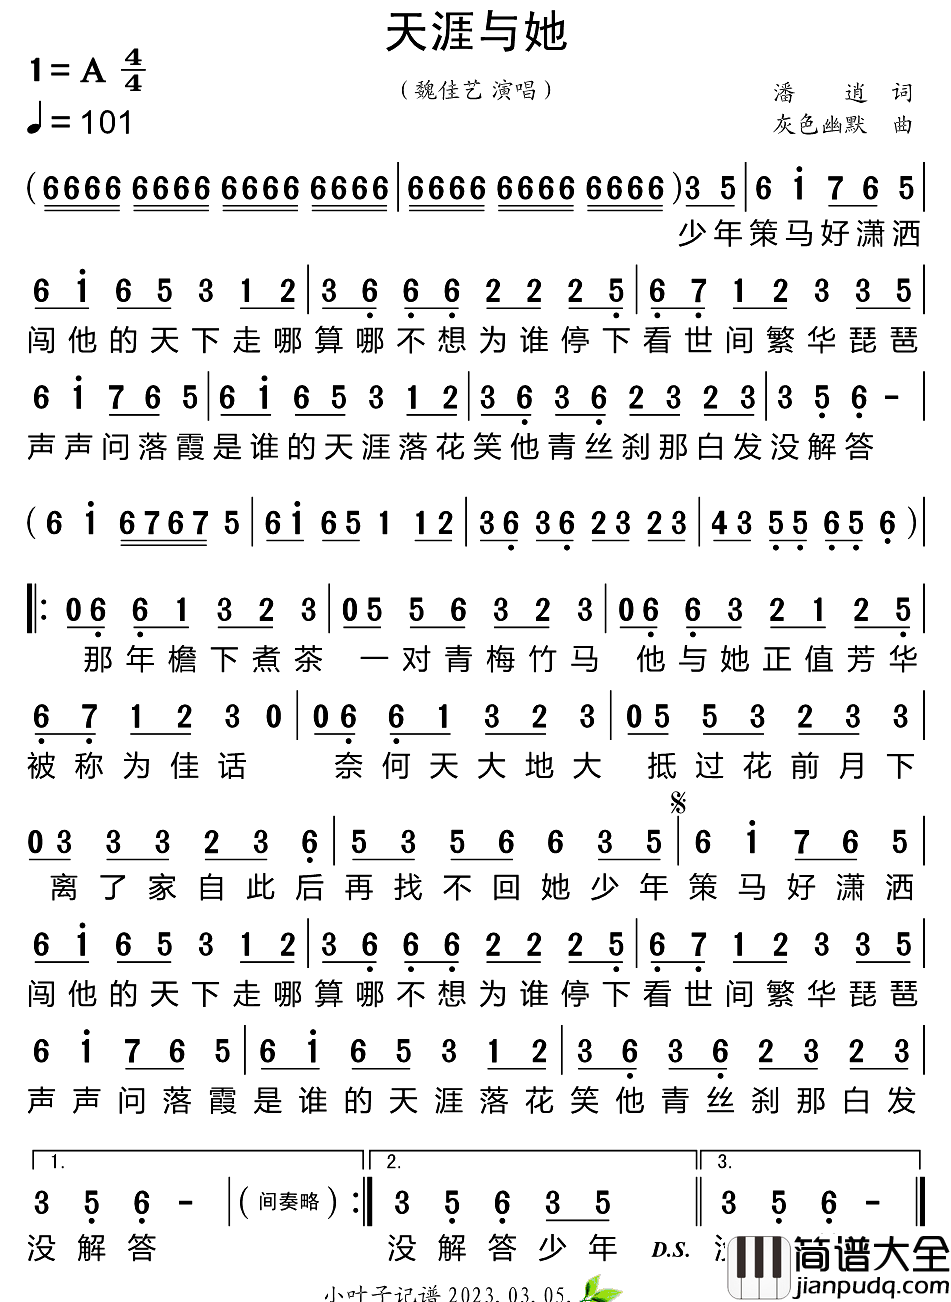 天涯与她
1=A 4/4
（魏佳艺 演唱）
潘 逍 词
♩=101
灰色幽默 曲
(6666 6666 6666 6666|6666 6666 6666)3 5|6 i 7 6 5|
少年策马好潇洒
6 i 6 5 3 1 2|3 6̣ 6̣ 6̣ 2 2 2 5̣|6̣ 7̣ 1 2 3 3 5|
闯他的天下走哪算哪不想为谁停下看世间繁华琵琶
6 i 7 6 5|6 i 6 5 3 1 2|3 6̣ 3 6̣ 2 3 2 3|3 5̣ 6̣ -
声声问落霞是谁的天涯落花笑他青丝刹那白发没解答
(6 i 6767 5|6i 65 1 12|36̣ 36̣ 23 23|43 5̣5̣ 6̣5̣ 6̣)|
‖: 0 6̣ 6̣ 1 3 2 3|0 5 5 6 3 2 3|0 6̣ 6̣ 3 2 1 2 5̣|
那年檐下煮茶 一对青梅竹马 他与她正值芳华
6̣ 7̣ 1 2 3 0|0 6̣ 6̣ 1 3 2 3|0 5 5 3 2 3 3|
被称为佳话 奈何天大地大 抵过花前月下
0 3 3 3 2 3 6̣|5 3 5 6 6 3 5|𝄋 6 i 7 6 5|
离了家自此后再找不回她少年策马好潇洒
6 i 6 5 3 1 2|3 6̣ 6̣ 6̣ 2 2 2 5̣|6̣ 7̣ 1 2 3 3 5|
闯他的天下走哪算哪不想为谁停下看世间繁华琵琶
6 i 7 6 5|6 i 6 5 3 1 2|3 6̣ 3 6̣ 2 3 2 3|
声声问落霞是谁的天涯落花笑他青丝刹那白发
1. 2. 3.
3 5̣ 6̣ -|(间奏略):‖3 5̣ 6̣ 3 5‖3 5̣ 6̣ -‖
没解答 没解答少年 D.S.
简谱大全
jianpudq.com
小叶子记谱2023.03.05.